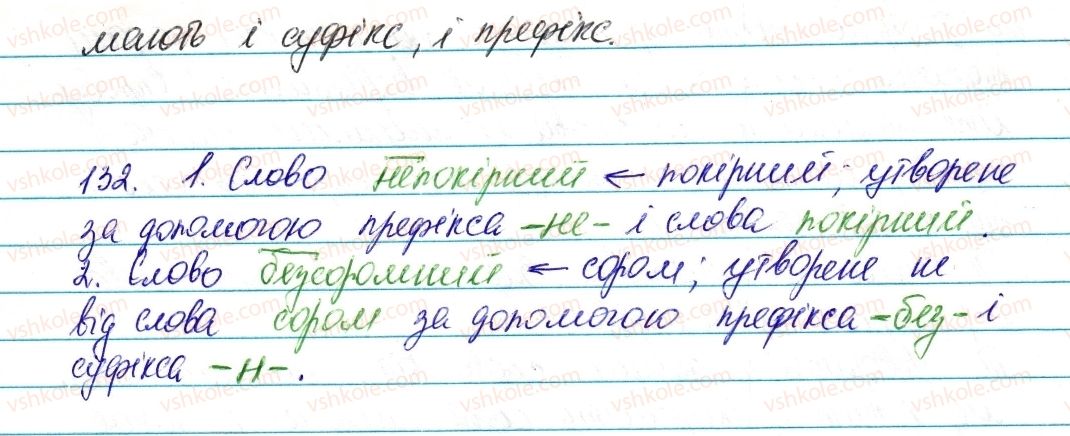 мають і суфікс, і префікс.
132. 1. Слово непокірний ← покірний; утворене
за допомогою префікса -не- і слова покірний.
2. Слово безсоромний ← сором; утворене не
від слова сором за допомогою префікса -без- і
суфікса -н-.